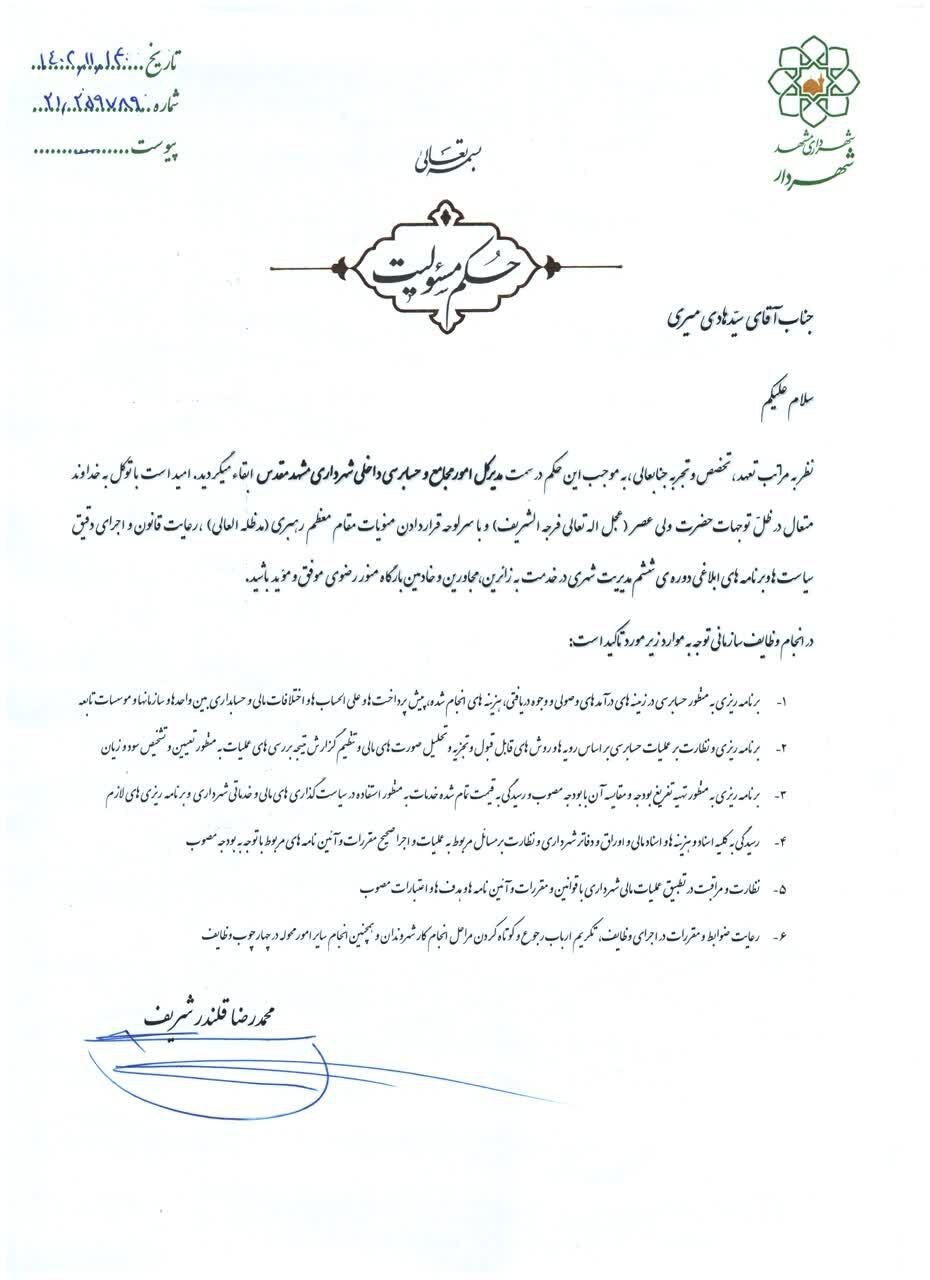 شهرداری مشهد
شهردار
تاریخ
شماره ۲۱/۲۵۹۷۸۹
پیوست
بسمه تعالی
حکم مسئولیت
جناب آقای سیّد هادی میری
سلام علیکم
نظر به مراتب تعهد، تخصص و تجربه جنابعالی، به موجب این حکم در سمت مدیرکل امور مجامع و حسابرسی داخلی شهرداری مشهد مقدس ابقاء میگردید. امید است با توکل به خداوند
متعال در ظلّ توجهات حضرت ولی عصر (عجل اله تعالی فرجه الشریف) و با سرلوحه قراردادن منویات مقام معظم رهبری (مدظله العالی)، رعایت قانون و اجرای دقیق
سیاست ها و برنامه های ابلاغی دوره ی ششم مدیریت شهری در خدمت به زائرین، مجاورین و خادمین بارگاه منور رضوی موفق و مؤید باشید.
در انجام وظایف سازمانی توجه به موارد زیر مورد تاکید است:
۱- برنامه ریزی به منظور حسابرسی در زمینه های درآمدهای وصولی و وجوه دریافتی، هزینه های انجام شده، پیش پرداخت ها و علی الحساب ها و اختلافات مالی و حسابداری بین واحدها و سازمانها و موسسات تابعه
۲- برنامه ریزی و نظارت بر عملیات حسابرسی بر اساس رویه ها و روش های قابل قبول و تجزیه و تحلیل صورت های مالی و تنظیم گزارش نتیجه بررسی های عملیات به منظور تعیین و تشخیص سود و زیان
۳- برنامه ریزی به منظور تهیه تفریغ بودجه و مقایسه آن با بودجه مصوب و رسیدگی به قیمت تمام شده خدمات به منظور استفاده در سیاست گذاری های مالی و خدماتی شهرداری و برنامه ریزی های لازم
۴- رسیدگی به کلیه اسناد و هزینه ها و اسناد مالی و اوراق و دفاتر شهرداری و نظارت بر مسائل مربوط به عملیات و اجرا صحیح مقررات و آئین نامه های مربوط با توجه به بودجه مصوب
۵- نظارت و مراقبت در تطبیق عملیات مالی شهرداری با قوانین و مقررات و آئین نامه ها و هدف ها و اعتبارات مصوب
۶- رعایت ضوابط و مقررات در اجرای وظایف، تکریم ارباب رجوع و کوتاه کردن مراحل انجام کار شهروندان و همچنین انجام سایر امور محوله در چهارچوب وظایف
محمدرضا قلندر شریف